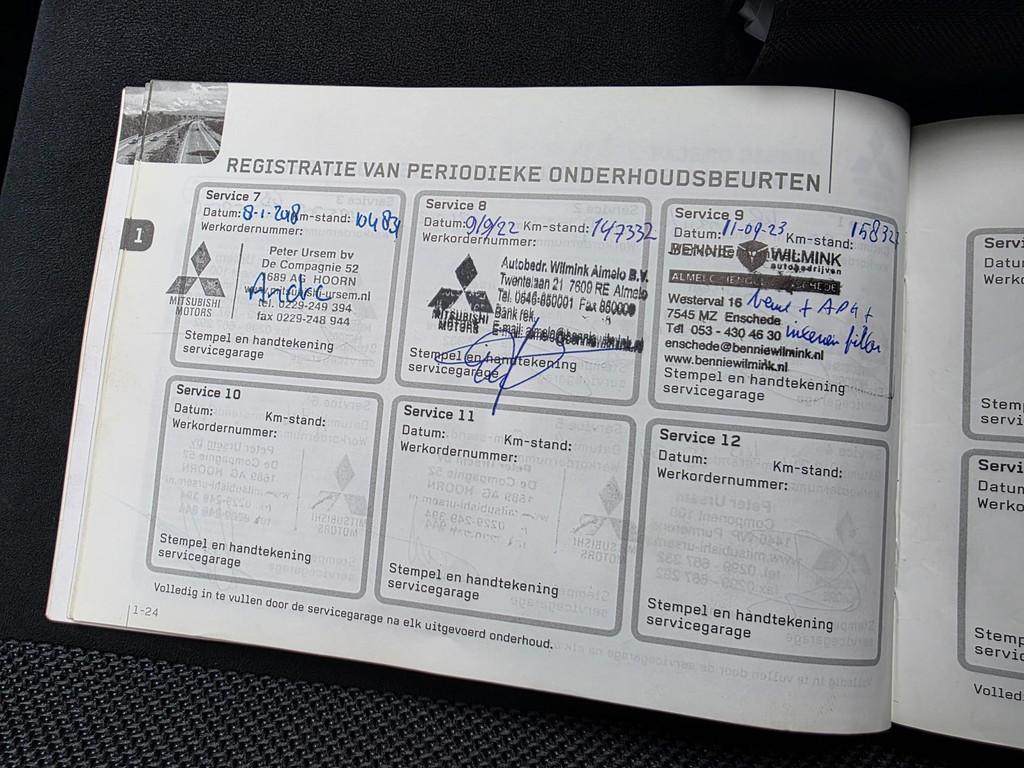 REGISTRATIE VAN PERIODIEKE ONDERHOUDSBEURTEN
1
Service 7
Datum: 8-1-2018 Km-stand: 104834
Werkordernummer:
Peter Ursem bv
De Compagnie 52
1689 AG HOORN
www.mitsubishi-ursem.nl
tel. 0229-249 394
fax 0229-248 944
MITSUBISHI
MOTORS
André
Stempel en handtekening
servicegarage
Service 8
Datum: 9/9/22 Km-stand: 147332
Werkordernummer:
Autobedr. Wilmink Almelo B.V.
Twentelaan 21 7609 RE Almelo
Tel. 0546-850001 Fax 850009
Bank rek.
E-mail: almelo@benniewilmink.nl
MITSUBISHI
MOTORS
Stempel en handtekening
servicegarage
Service 9
Datum: 11-09-23 Km-stand: 15832
BENNIE WILMINK
autobedrijven
ALMELO ENSCHEDE
Westerval 16
7545 MZ Enschede
Tel 053 - 430 46 30
enschede@benniewilmink.nl
www.benniewilmink.nl
beurt + APK +
interieur filter
Stempel en handtekening
servicegarage
Service 10
Datum: Km-stand:
Werkordernummer:
Stempel en handtekening
servicegarage
Service 11
Datum: Km-stand:
Werkordernummer:
Stempel en handtekening
servicegarage
Service 12
Datum: Km-stand:
Werkordernummer:
Stempel en handtekening
servicegarage
Volledig in te vullen door de servicegarage na elk uitgevoerd onderhoud.
1-24
Servi
Datu
Werk
Stem
servi
Servi
Datum
Werko
Stemp
servic
Volled